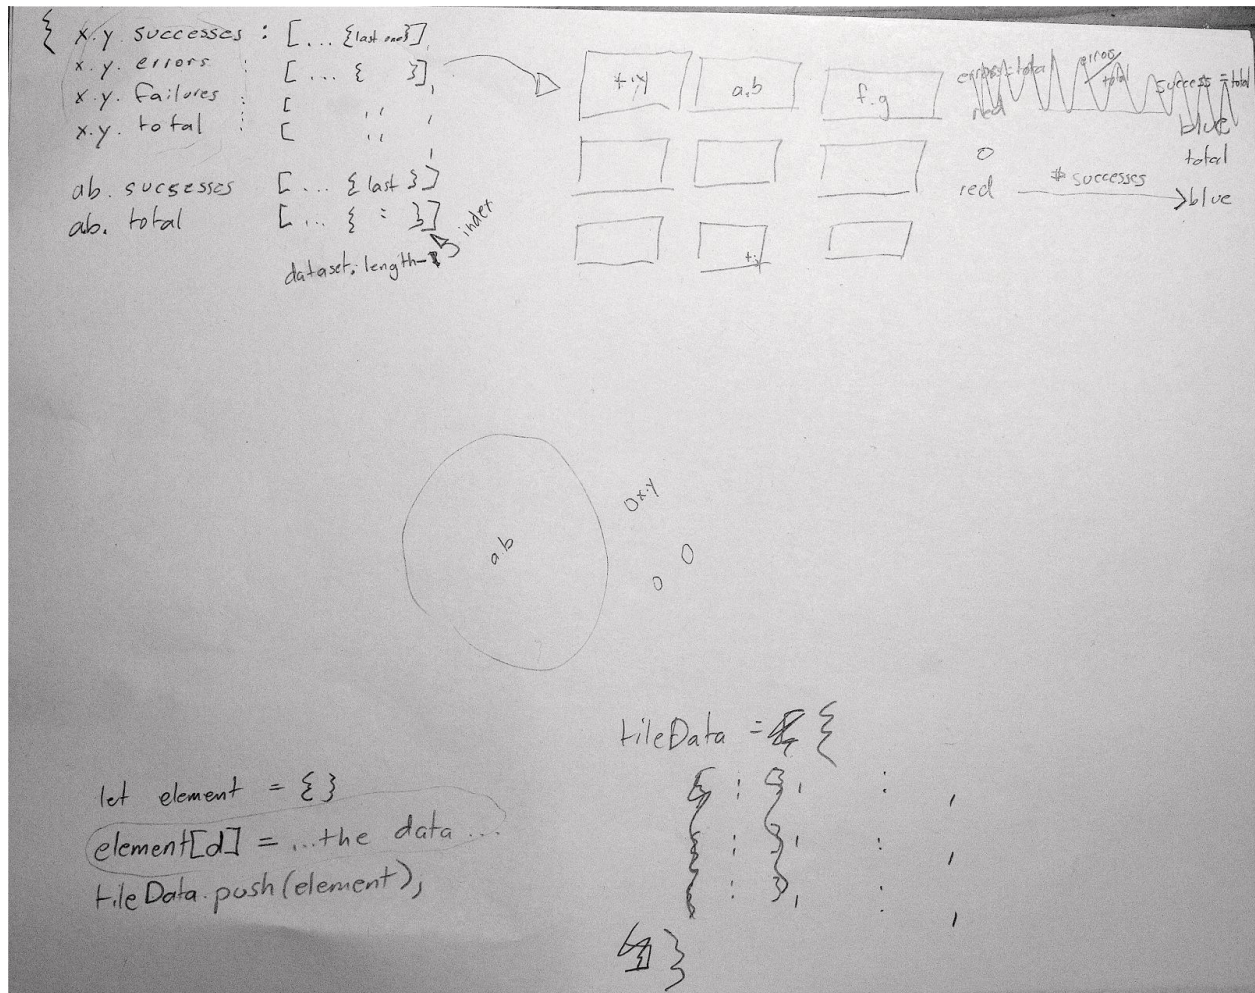 { x.y. successes : [... {last one}],
x.y. errors : [... { }],
x.y. failures : [ ,, ,
x.y. total : [ ,, ,
ab. successes [... {last }]
ab. total [... { : }]
dataset.length-1 index
x.y a.b f.g
errors = total errors total success = total
red blue
0 total
red # successes blue
a.b
x.y
tileData = {
: , : ,
: , : ,
: , : ,
}
let element = {}
element[d] = ...the data ...
tileData.push(element);